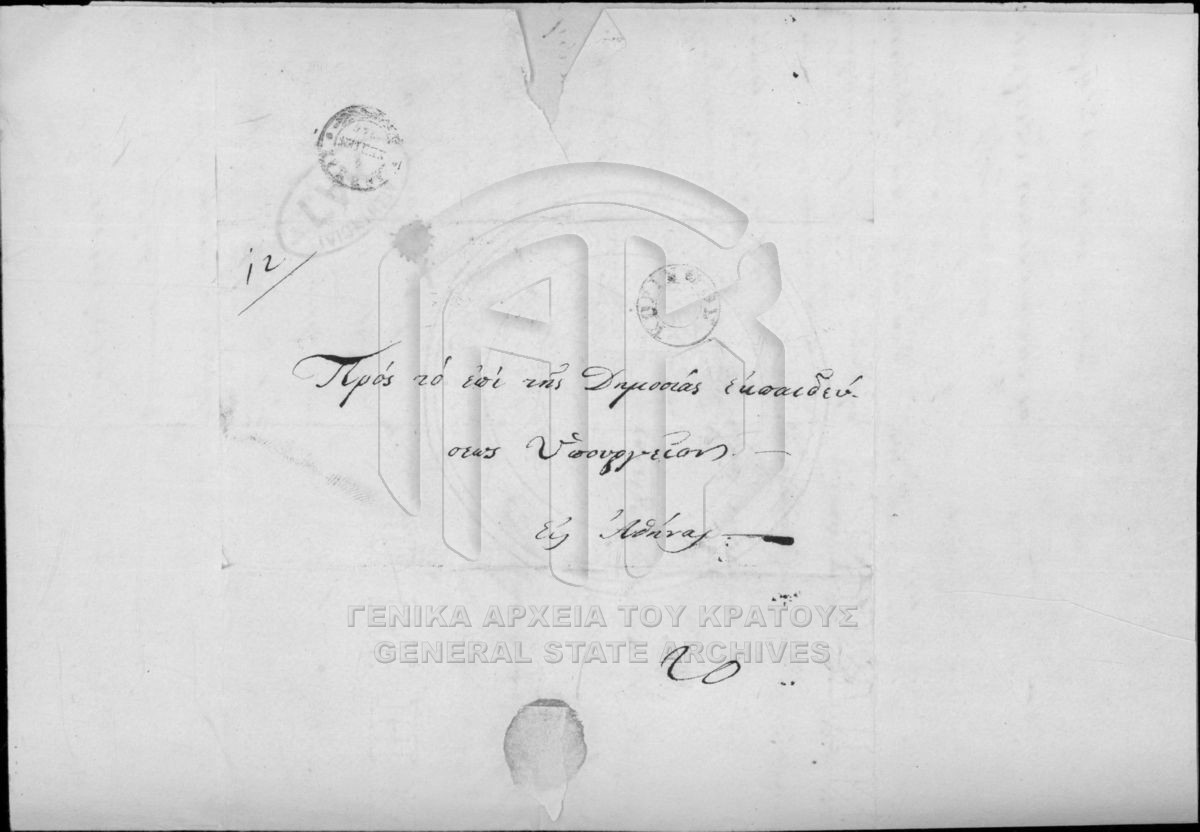 12
Πρός τό ἐπί τῆς Δημοσίας ἐκπαιδεύ-
σεως Ὑπουργεῖον
Εἰς Ἀθήνας
ΓΕΝΙΚΑ ΑΡΧΕΙΑ ΤΟΥ ΚΡΑΤΟΥΣ
GENERAL STATE ARCHIVES
20